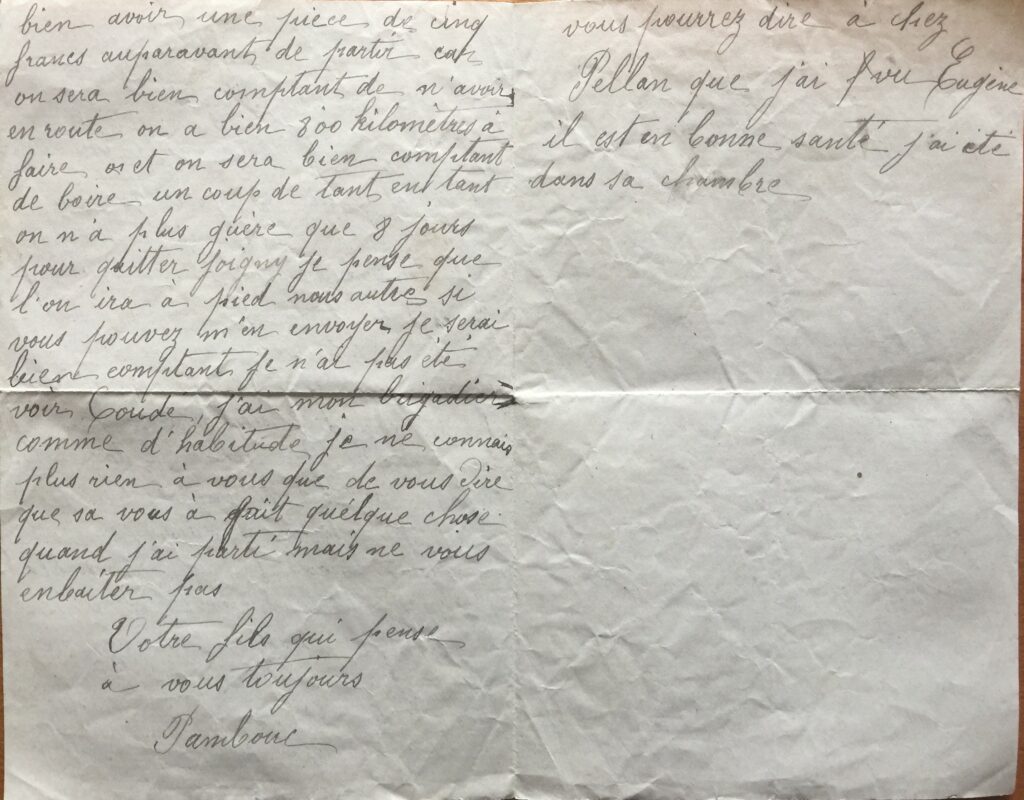 bien avoir une pièce de cinq
francs auparavant de partir car
on sera bien comptant de n'avoir
en route on a bien 800 kilomètres à
faire et on sera bien comptant
de boire un coup de tant en tant
on n'à plus guère que 8 jours
pour quitter Joigny je pense que
l'on ira à pied nous autre si
vous pouvez m'en envoyer je serai
bien comptant je n'ai pas été
voir Coude, j'ai mon brigadier
comme d'habitude je ne connais
plus rien à vous que de vous dire
que sa vous à fait quélque chose
quand j'ai parti mais ne vous
enbaiter pas
Votre fils qui pense
à vous toujours
vous pourrez dire à chez
Pellan que j'ai vu Eugène
il est en bonne santé j'ai été
dans sa chambre